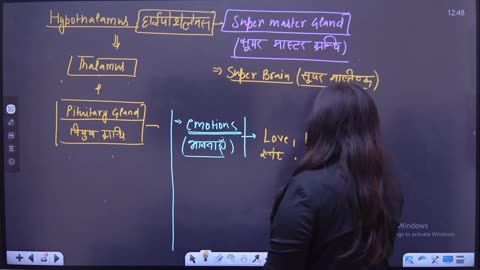 12:48
Hypothalamus (हाईपोथैलेमस) → Super master Gland
(सुपर मास्टर ग्रन्थि)
⇒ Super Brain (सुपर मस्तिष्क)
Thalamus
+
Pituitary Gland
पियुष ग्रन्थि
→ emotions → Love,
(भावनाएं)
Windows
ngs to activate Windows.